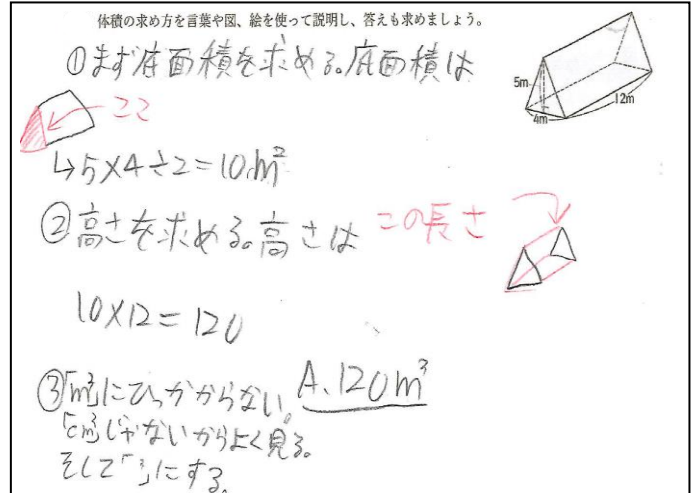 体積の求め方を言葉や図、絵を使って説明し、答えも求めましょう。
①まず底面積を求める。底面積は
ココ
↳5×4÷2=10m²
5m
4m
12m
②高さを求める。高さは この長さ
10×12=120
③「m³」にひっかからない。 A、120m³
「cm³」じゃないからよく見る。
そして「³」にする。